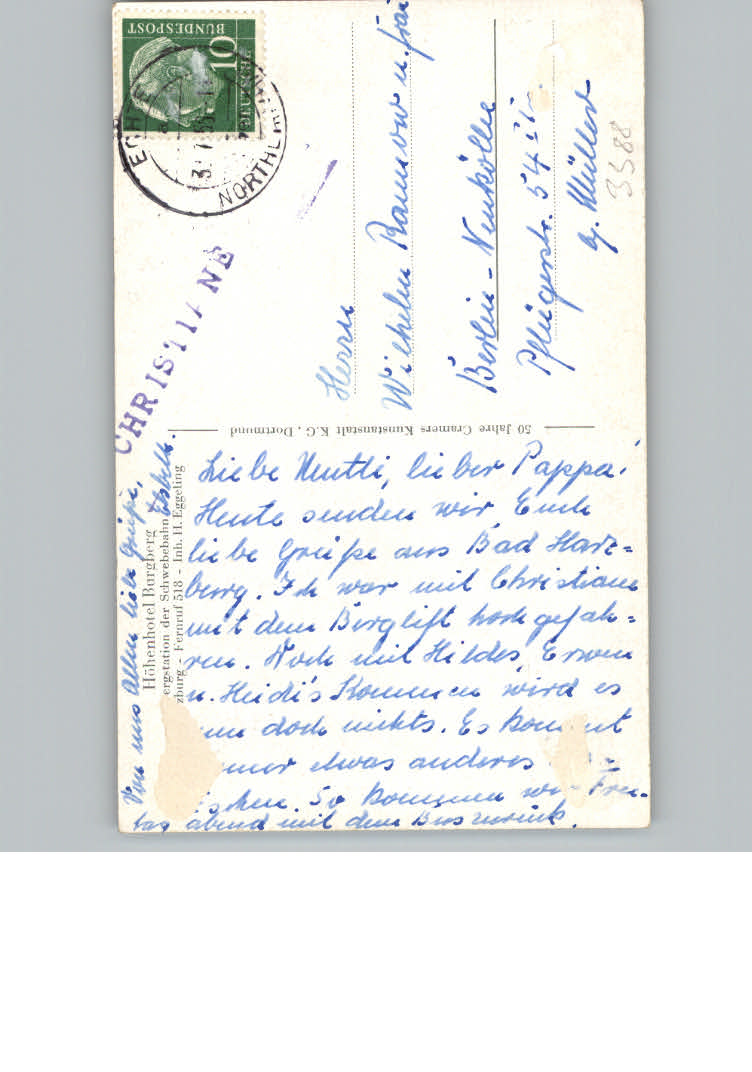 10
DEUTSCHE
BUNDESPOST
NORTHEIM
CHRISTIANE
Herrn
Wilhelm Ramow u. Frau
Berlin-Neukölln
Pflügerstr. 54
b. Müller
3588
50 Jahre Cramers Kunstanstalt K.G., Dortmund
Höhenhotel Burgberg
ergstation der Schwebebahn
zburg - Fernruf 518 - Inh. H. Eggeling
Liebe Mutti, lieber Pappa!
Heute senden wir Euch
liebe Grüße aus Bad Harz-
burg. Ich war mit Christiane
mit dem Berglift hoch gefah-
ren. Noch mit Hildes, Erwin
u. Heidi's Kommen wird es
nun doch nichts. Es kommt
immer etwas anderes
zwischen. So kommen wir Frei-
tag abend mit dem Bus zurück.
Von uns allen liebe Grüße,